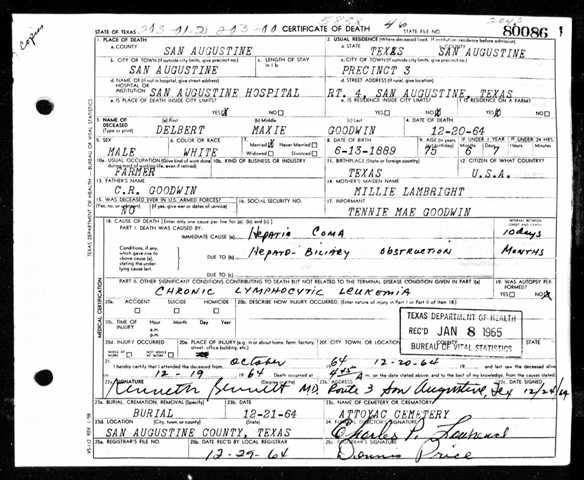 Copies
STATE OF TEXAS CERTIFICATE OF DEATH STATE FILE NO. 80086
1. PLACE OF DEATH 2. USUAL RESIDENCE (Where deceased lived. If institution: residence before admission)
a. COUNTY SAN AUGUSTINE a. STATE TEXAS COUNTY SAN AUGUSTINE
b. CITY OR TOWN (If outside city limits, give precinct no.) c. LENGTH OF STAY in 1b c. CITY OR TOWN (If outside city limits, give precinct no.)
SAN AUGUSTINE PRECINCT 3
d. NAME OF (If not in hospital, give street address) HOSPITAL OR INSTITUTION SAN AUGUSTINE HOSPITAL d. STREET ADDRESS (If rural, give location) RT. 4, SAN AUGUSTINE, TEXAS
e. IS PLACE OF DEATH INSIDE CITY LIMITS? YES NO e. IS RESIDENCE INSIDE CITY LIMITS? YES NO f. IS RESIDENCE ON A FARM? YES NO
3. NAME OF DECEASED (Type or print) (a) First (b) Middle (c) Last 4. DATE OF DEATH
DELBERT MAXIE GOODWIN 12-20-64
5. SEX 6. COLOR OR RACE 7. Married Never Married Widowed Divorced 8. DATE OF BIRTH 9. AGE IF UNDER 1 YEAR IF UNDER 24 HRS.
MALE WHITE 6-13-1889 75 6 7
10a. USUAL OCCUPATION (Give kind of work done during most of working life, even if retired) 10b. KIND OF BUSINESS OR INDUSTRY 11. BIRTHPLACE (State or foreign country) 12. CITIZEN OF WHAT COUNTRY?
FARMER TEXAS U.S.A.
13. FATHER'S NAME 14. MOTHER'S MAIDEN NAME
C.R. GOODWIN MILLIE LAMBRIGHT
15. WAS DECEASED EVER IN U.S. ARMED FORCES? 16. SOCIAL SECURITY NO. 17. INFORMANT
(Yes, no, or unknown) (If yes, give war or dates of service)
NO TENNIE MAE GOODWIN
18. CAUSE OF DEATH [Enter only one cause per line for (a), (b), and (c).] INTERVAL BETWEEN ONSET AND DEATH
PART I. DEATH WAS CAUSED BY:
IMMEDIATE CAUSE (a) Hepatic Coma 10 days
Conditions, if any, which gave rise to above cause (a), stating the underlying cause last.
DUE TO (b) Hepato-Biliary Obstruction Months
DUE TO (c)
PART II. OTHER SIGNIFICANT CONDITIONS CONTRIBUTING TO DEATH BUT NOT RELATED TO THE TERMINAL DISEASE CONDITION GIVEN IN PART I(a) 19. WAS AUTOPSY PERFORMED?
Chronic Lymphocytic Leukemia YES NO
20a. ACCIDENT SUICIDE HOMICIDE 20b. DESCRIBE HOW INJURY OCCURRED. (Enter nature of injury in Part I or Part II of item 18.)
20c. TIME OF INJURY Hour Month Day Year a.m. p.m.
TEXAS DEPARTMENT OF HEALTH
REC'D JAN 8 1965
BUREAU OF VITAL STATISTICS
20d. INJURY OCCURRED WHILE AT WORK NOT WHILE AT WORK 20e. PLACE OF INJURY (e.g., in or about home, farm, factory, street, office building, etc.) 20f. CITY, TOWN, OR LOCATION
21. I hereby certify that I attended the deceased from October 64 12-20-64 and last saw the deceased alive on
12-19 64 Death occurred at 4:45 A m. on the date stated above, and to the best of my knowledge, from the causes stated.
22a. SIGNATURE 22b. ADDRESS 22c. DATE SIGNED
Kenneth Bennett M.D. Route 3 San Augustine, Tex 12/24/64
23a. BURIAL, CREMATION, REMOVAL (Specify) 23b. DATE 23c. NAME OF CEMETERY OR CREMATORY
BURIAL 12-21-64 ATTOYAC CEMETERY
23d. LOCATION (City, town, or county) (State) 24. FUNERAL DIRECTOR'S SIGNATURE
SAN AUGUSTINE COUNTY, TEXAS Charles P.
25a. REGISTRAR'S FILE NO. 25b. DATE REC'D BY LOCAL REGISTRAR 25c. REGISTRAR'S SIGNATURE
12-29-64 Price
TEXAS DEPARTMENT OF HEALTH — BUREAU OF VITAL STATISTICS
MEDICAL CERTIFICATION